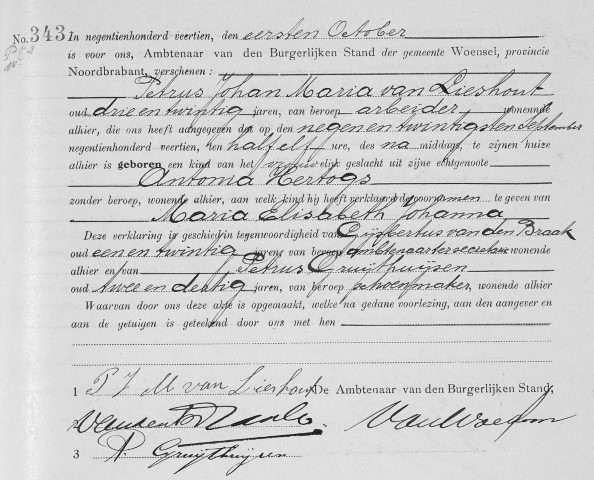 No. 343 In negentienhonderd veertien, den eersten October
is voor ons, Ambtenaar van den Burgerlijken Stand der gemeente Woensel, provincie
Noordbrabant, verschenen:
Petrus Johan Maria van Lieshout
oud drie en twintig jaren, van beroep arbeider, wonende
alhier, die ons heeft aangegeven dat op den negen en twintigsten September
negentienhonderd veertien, ten half elf ure, des na middags, te zijnen huize
alhier is geboren een kind van het vrouwelijk geslacht uit zijne echtgenoote
Antonia Hertogs
zonder beroep, wonende alhier, aan welk kind hij heeft verklaard de voornamen te geven van
Maria Elisabeth Johanna,
Deze verklaring is geschied in tegenwoordigheid van Gijsbertus van den Braak
oud een en twintig jaren, van beroep ambtenaar ter secretarie wonende
alhier en van Petrus Gruijthuijsen
oud twee en dertig jaren, van beroep schoenmaker, wonende alhier
Waarvan door ons deze akte is opgemaakt, welke na gedane voorlezing, aan den aangever en
aan de getuigen is geteekend door ons met hen
1 P J M van Lieshout De Ambtenaar van den Burgerlijken Stand,
3 P. Gruijthuijsen